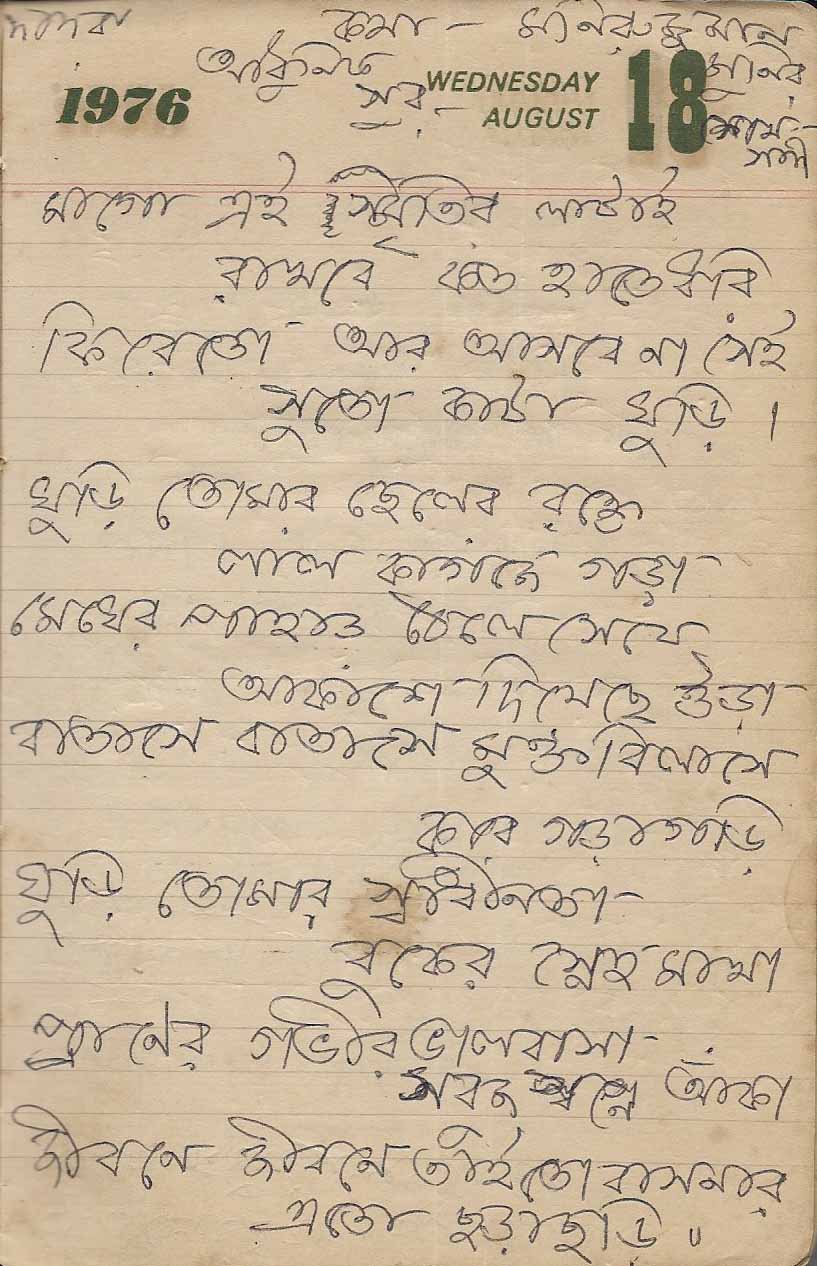 দাদরা কথা - মনিরুজ্জমান
আধুনিক মুনির
1976 সুর - WEDNESDAY AUGUST 18
মাগো এই স্মৃতির লাটাই
রাখবে কত হাতে ধরি
ফিরেতো আর আসবে না সেই
সুতো কাটা ঘুড়ি ।
ঘুড়ি তোমার ছেলের রক্তে
লাল কাগজে গড়া
মেঘের পাহাড় ঠেলে সেযে
আকাশে দিয়েছে উড়া
বাতাসে বাতাসে মুক্ত বিলাসে
করে গড়াগড়ি
ঘুড়ি তোমার স্বাধীনতা
বুকের স্নেহ মাখা
প্রানের গভীর ভালবাসা
সবুজ স্বপ্নে আঁকা
জীবনে জীবনে তাইতো বাসনার
এতো ছড়াছড়ি ॥